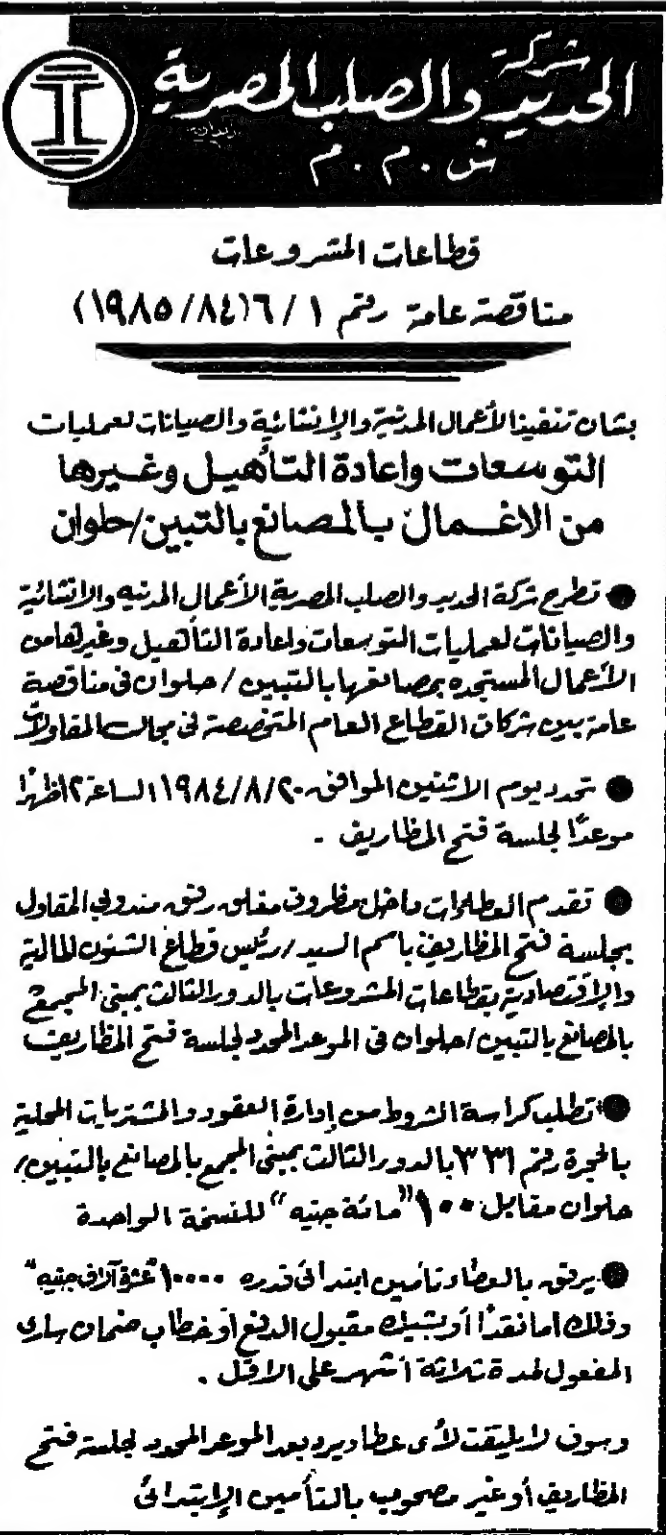 شركة
الحديد والصلب المصرية
ش . م . م
قطاعات المشروعات
مناقصة عامة رقم ٦/١ (١٩٨٥/٨٤)
بشان تنفيذ الأعمال المدنية والإنشائية والصيانات لعمليات
التوسعات واعادة التأهيل وغيرها
من الاعمال بالمصانع بالتبين/حلوان
● تطرح شركة الحديد والصلب المصرية الأعمال المدنيه والانشائية
والصيانات لعمليات التوسعات واعادة التأهيل وغيرها من
الأعمال المستجده بمصانعها بالتبين / حلوان فى مناقصة
عامة بين شركات القطاع العام المتخصصة فى مجالات المقاولات
● تحدد يوم الاثنين الموافق ١٩٨٤/٨/٢٠ الساعة ١٢ ظهرًا
موعدًا لجلسة فتح المظاريف .
● تقدم العطاءات داخل مظروف مغلق رفق مندوبي المقاول
بجلسة فتح المظاريف باسم السيد / رئيس قطاع الشئون المالية
والاقتصادية بقطاعات المشروعات بالدور الثالث بمبنى المجمع
بالمصانع بالتبين / حلوان فى الموعد المحدد لجلسة فتح المظاريف
● تطلب كراسة الشروط من إدارة العقود والمشتريات المحلية
بالحجرة رقم ٣٣١ بالدور الثالث بمبنى المجمع بالمصانع بالتبين /
حلوان مقابل ١٠٠ "مائة جنيه" للنسخة الواحدة
● يرفق بالعطاء تأمين ابتدائى قدره ١٠٠٠٠ "عشرة آلاف جنيه"
وذلك اما نقدًا أو بشيك مقبول الدفع أو خطاب ضمان سارى
المفعول لمدة ثلاثة أشهر على الاقل .
وسوف لا يلتفت لأى عطاء يرد بعد الموعد المحدد لجلسة فتح
المظاريف أو غير مصحوب بالتأمين الإبتدائى